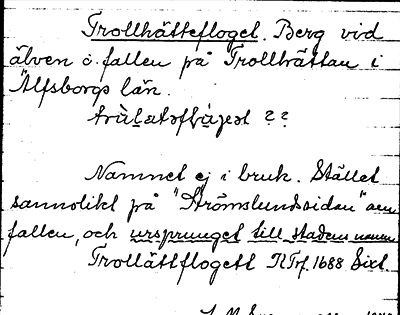 Trollhättefloget. Berg vid
älven o. fallen på Trollhättan i
Älfsborgs län.
??
Namnet ej i bruk. Stället
sannolikt på "Strömslundssidan" av
fallen, och ursprunget till stadens namn
Trollättflogett RTrf. 1688